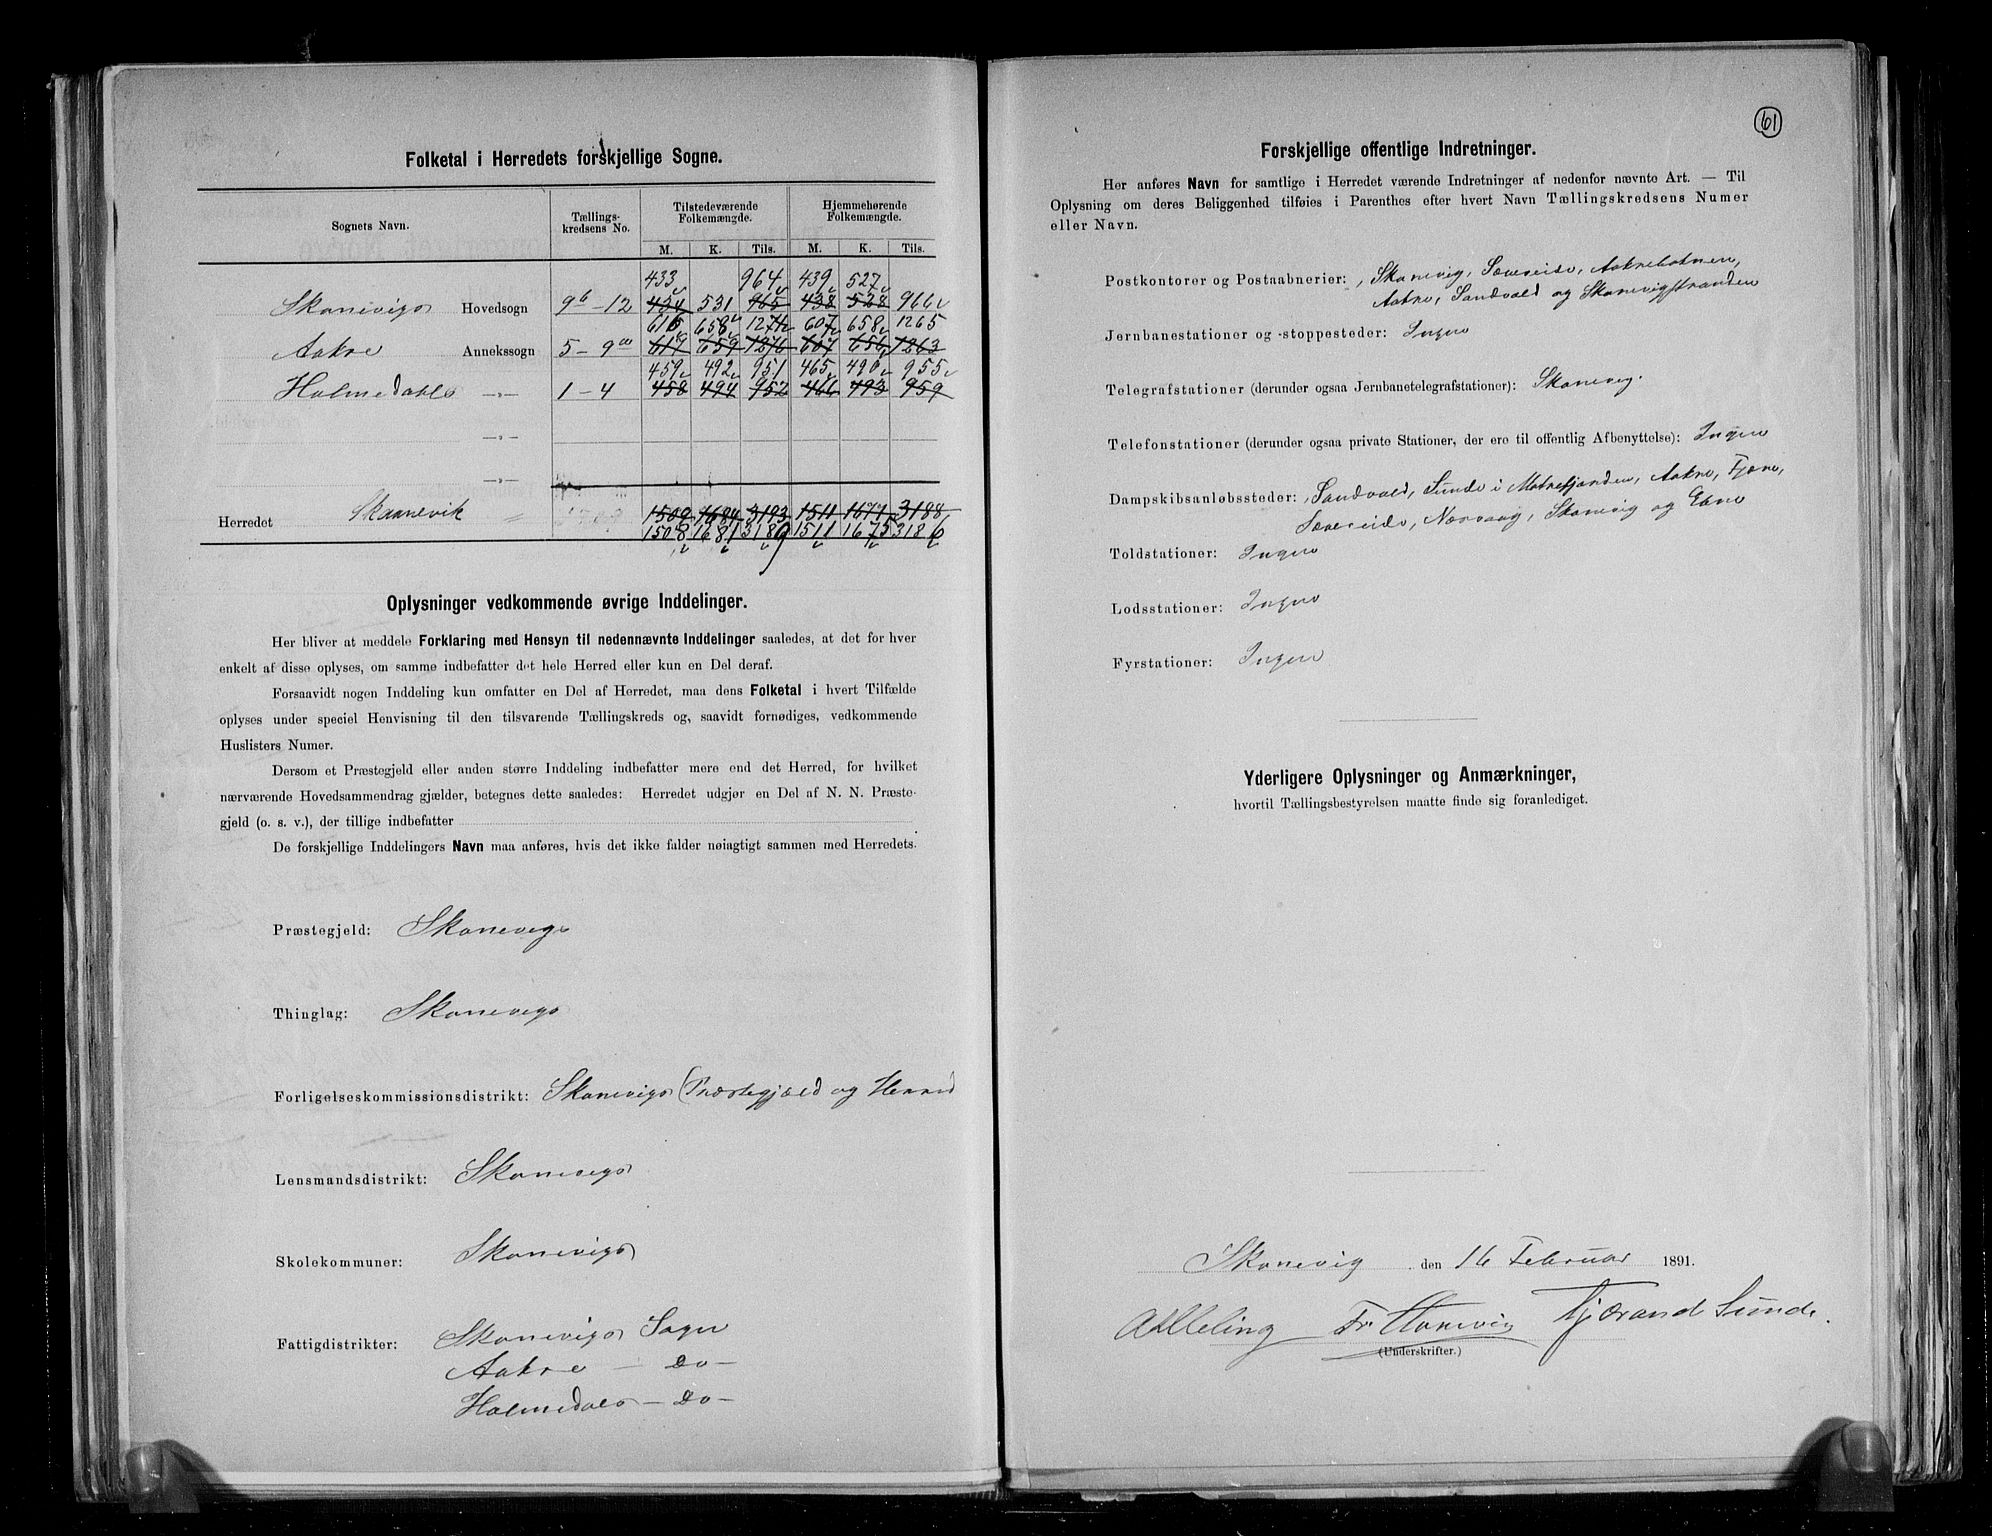 Folketal i Herredets forskjellige Sogne.
Sognets Navn. Tællings-kredsens No. Tilstedeværende Folkemængde. Hjemmehørende Folkemængde.
M. K. Tils. M. K. Tils.
433 964 439 527
Skonevigs Hovedsogn 9b-12 434 531 965 438 528 966
616 658 1274 607 658 1265
Aakre Annekssogn 5-9a 617 659 1276 607 656 1263
459 492 951 465 490 955
Holmedahls -„- 1-4 458 494 952 466 493 959
-„-
-„-
Herredet Skaanevik „ 1509 1684 3193 1511 1677 3188
1508 1681 3189 1511 1675 3186
Oplysninger vedkommende øvrige Inddelinger.
Her bliver at meddele Forklaring med Hensyn til nedennævnte Inddelinger saaledes, at det for hver
enkelt af disse oplyses, om samme indbefatter det hele Herred eller kun en Del deraf.
Forsaavidt nogen Inddeling kun omfatter en Del af Herredet, maa dens Folketal i hvert Tilfælde
oplyses under speciel Henvisning til den tilsvarende Tællingskreds og, saavidt fornødiges, vedkommende
Huslisters Numer.
Dersom et Præstegjeld eller anden større Inddeling indbefatter mere end det Herred, for hvilket
nærværende Hovedsammendrag gjælder, betegnes dette saaledes: Herredet udgjør en Del af N. N. Præste-
gjeld (o. s. v.), der tillige indbefatter
De forskjellige Inddelingers Navn maa anføres, hvis det ikke falder nøiagtigt sammen med Herredets.
Præstegjeld: Skonevigs
Thinglag: Skonevigs
Forligelseskommissionsdistrikt: Skonevigs (Præstegjæld og Herred
Lensmandsdistrikt: Skonevigs
Skolekommuner: Skonevigs
Fattigdistrikter: Skonevigs Sogn
Aakre — Do —
Holmedals — Do —
61
Forskjellige offentlige Indretninger.
Her anføres Navn for samtlige i Herredet værende Indretninger af nedenfor nævnte Art. — Til
Oplysning om deres Beliggenhed tilføies i Parenthes efter hvert Navn Tællingskredsens Numer
eller Navn.
Postkontorer og Postaabnerier: Skonevig, Sævereide, Aakrebotnen,
Aakre, Sandvold og Skonevigstranden
Jernbanestationer og -stoppesteder: Ingen
Telegrafstationer (derunder ogsaa Jernbanetelegrafstationer): Skonevig.
Telefonstationer (derunder ogsaa private Stationer, der ere til offentlig Afbenyttelse): Ingen
Dampskibsanløbssteder: Sandvold, Sunde i Matrefjorden, Aakre, Fjære,
Sæverside, Nærvaag, Skonevig og Etne
Toldstationer: Ingen
Lodsstationer: Ingen
Fyrstationer: Ingen
Yderligere Oplysninger og Anmærkninger,
hvortil Tællingsbestyrelsen maatte finde sig foranlediget.
Skonevig den 16 Februar 1891.
Fr. Skonevig Tjærand Sunde.
(Underskrifter.)